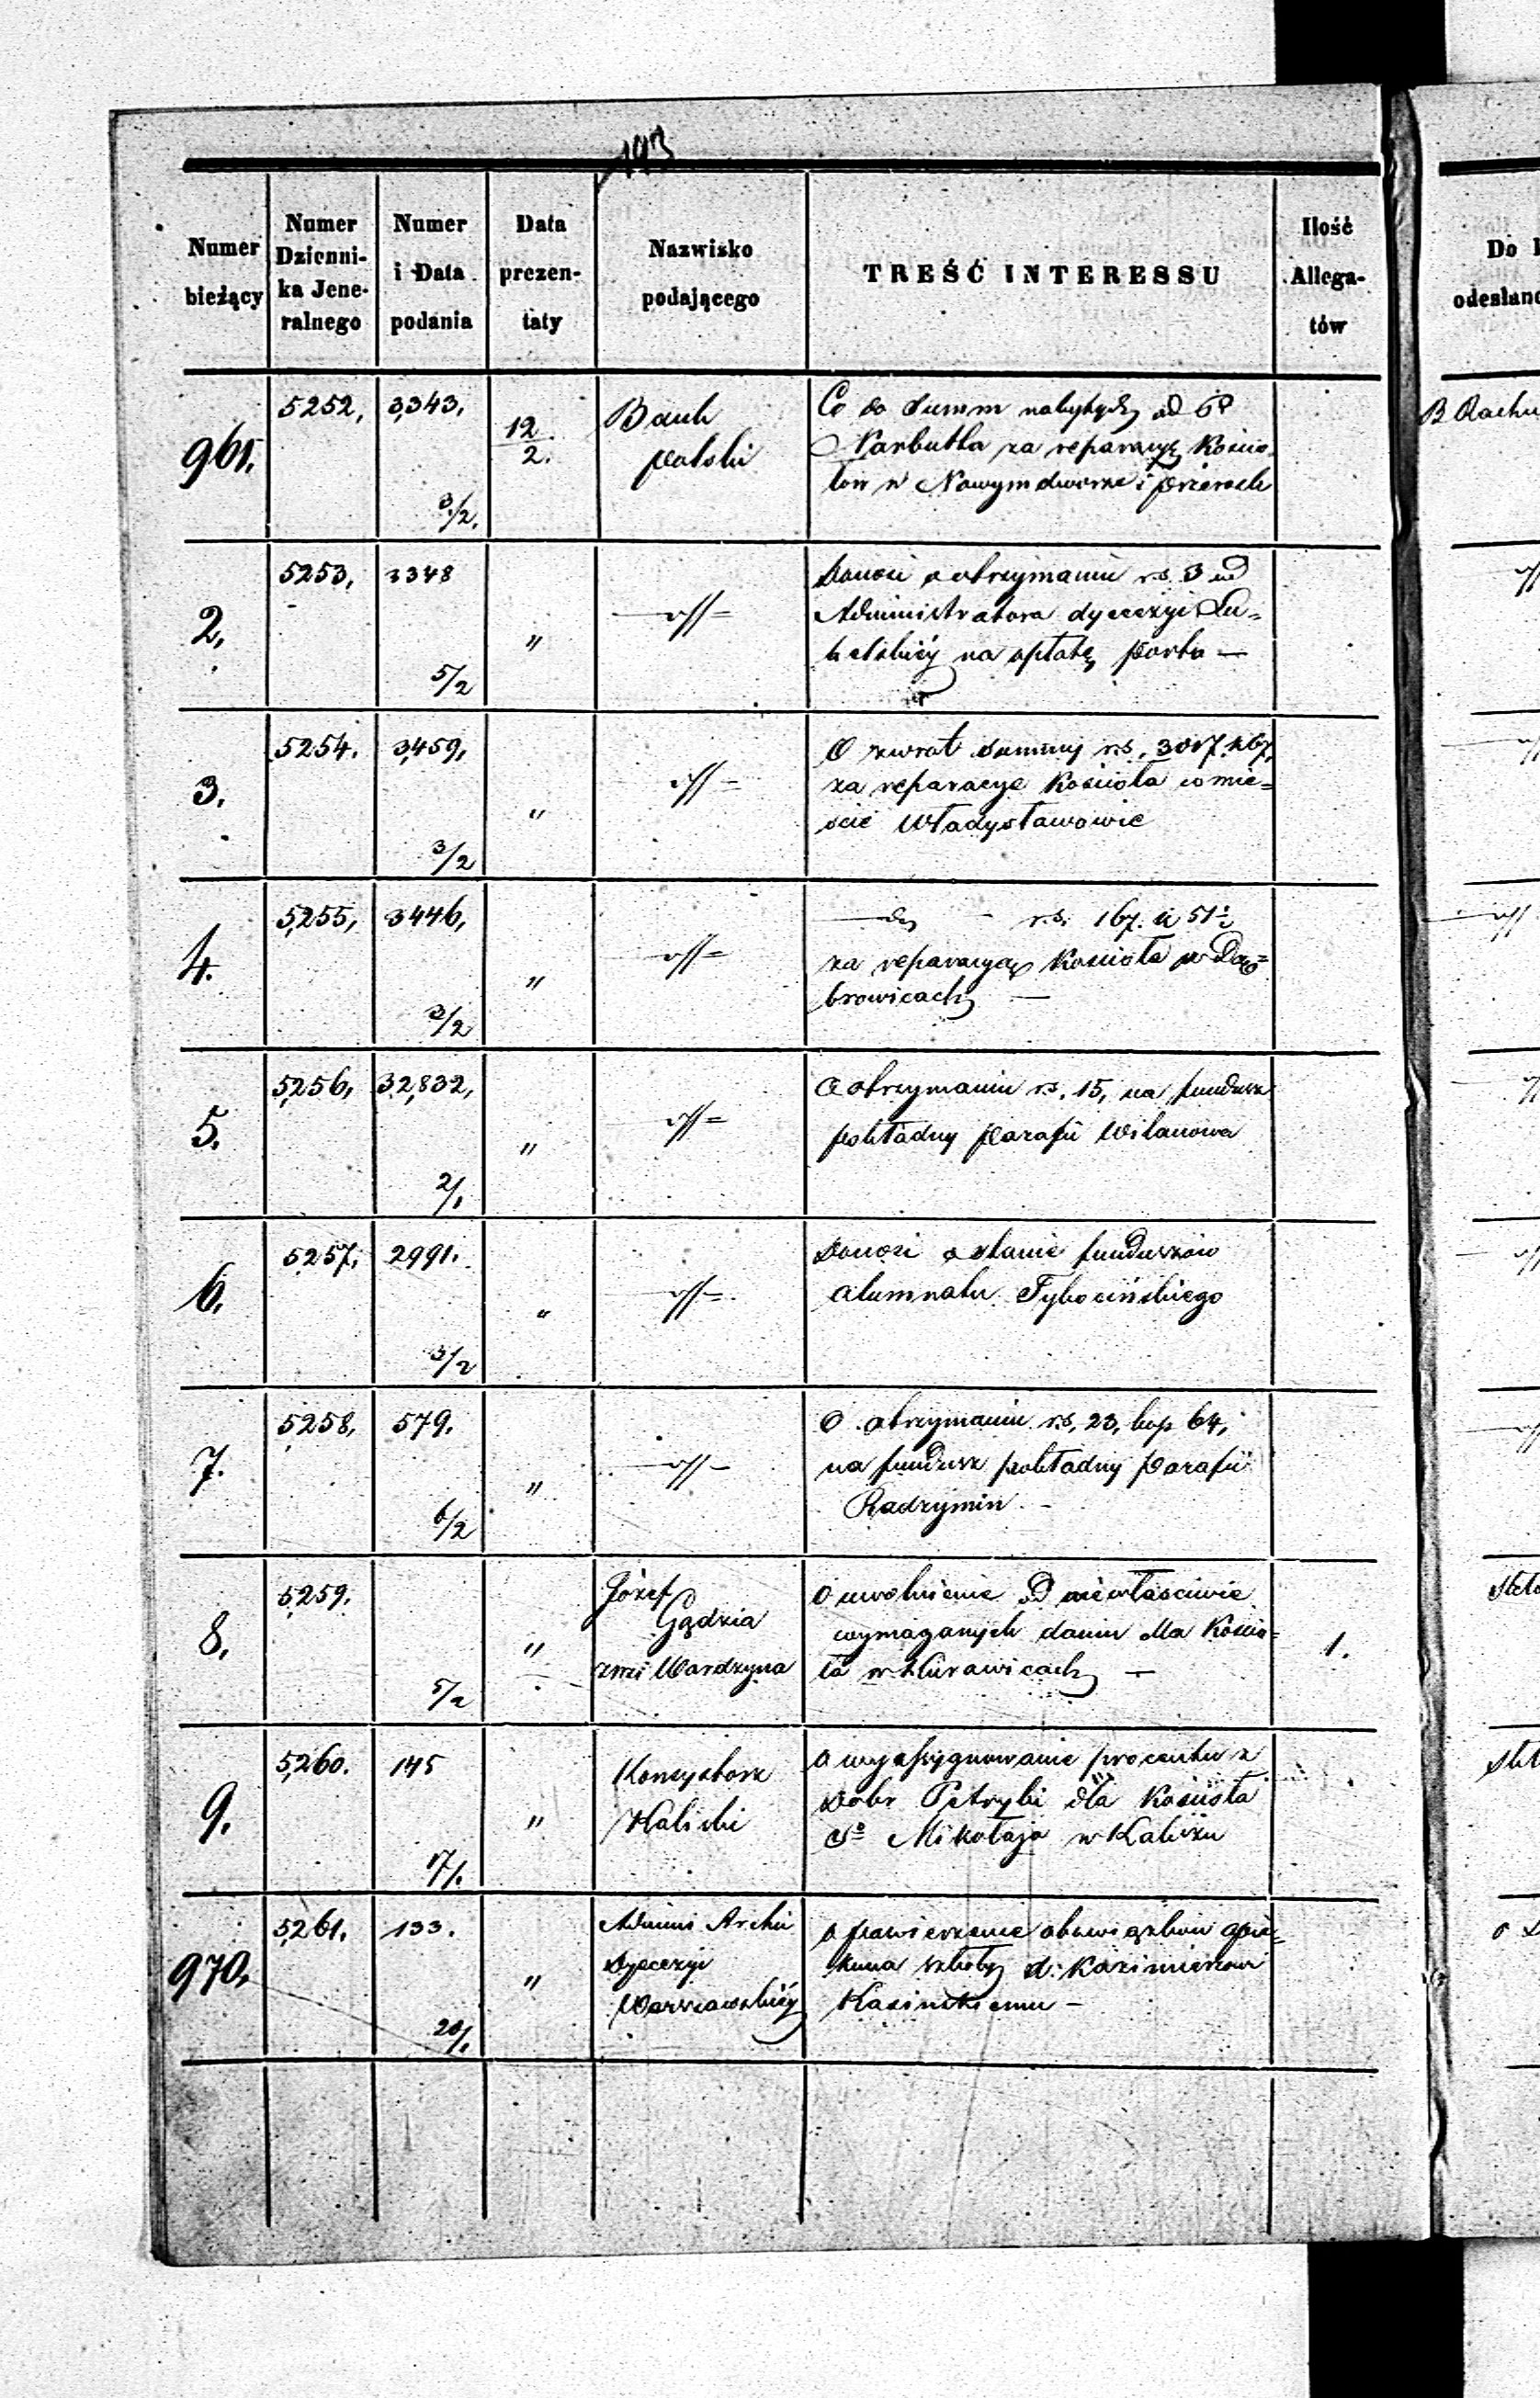 193
Numer bieżący
Numer Dzienni-ka Jene-ralnego
Numer i Data podania
Data prezen-taty
Nazwisko podającego
TREŚĆ INTERESSU
Ilość Allega-tów
Do
odesłano
961.
5252,
3,343,
3/2.
12/2.
Bank
polski
Co do summ należytych od
Narbutta za reparacyę Kościo-
łow w Nowymdworze i
B Rachu
2.
5253,
3348
5/2
"
Donosi o otrzymaniu rs. 3 od
Administratora dyecezyi Lu-
belskiéy na opłatę porto —
3.
5254.
3,459,
3/2
"
O zwrot summy rs. 3017.
za reparacye Kościoła w mie-
ście Władysławowie
4.
5255,
3446,
3/2
"
rs. 167. k 51½
za reparacyą Kościoła w Dąb-
browicach —
5.
5256,
32,832,
2/1
"
O otrzymaniu rs. 15, na fundusz
pokładny parafii Wilanowa
6.
5257,
2991.
3/2
"
Donosi o stanie funduszów
alumnatu Tykocińskiego
7.
5258,
579.
6/2
"
O otrzymaniu rs. 23, kop 64,
na fundusz pokładny parafii
Radzymin. -
8.
5259.
5/2
"
Józef
Gądzia
z wsi Wardzyna
O uwolnienie od niewłaściwie
wymaganych danin dla Kościo-
ła w Kurowicach —
1.
9.
5260.
145
17/1.
"
Konsystorz
Kaliski
O wyassygnowanie procentu z
Dobr Pętryki dla Kościoła
Sº Mikołaja w Kaliszu
970.
5261.
133.
20/1.
"
Admini Archi
Dyecezyi
Warszawskiéy
O powierzenie obowiązków opie-
kuna szkoły d. Kazimierzowi
Kasinskiemu -